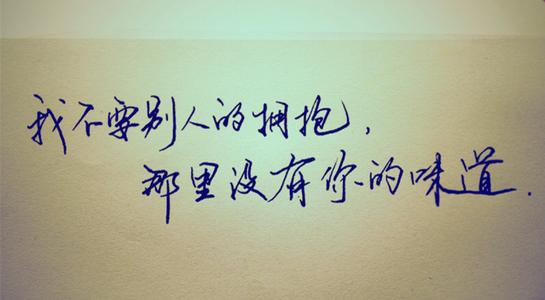 我不要别人的拥抱,
那里没有你的味道.